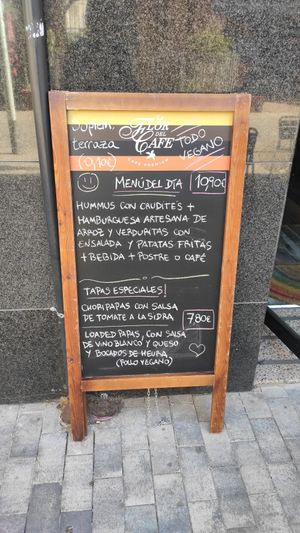 Suplem.
terraza
(0,10€)
FLOR
DEL
CAFÉ
CAFÉ PREMIUM
TODO
VEGANO
MENÚ DEL DÍA 10,90€
HUMMUS CON CRUDITÉS +
HAMBURGUESA ARTESANA DE
ARROZ Y VERDURITAS CON
ENSALADA Y PATATAS FRITAS
+ BEBIDA + POSTRE O CAFÉ
TAPAS ESPECIALES!
CHORIPAPAS CON SALSA
DE TOMATE A LA SIDRA 7,80€
LOADED PAPAS, CON SALSA
DE VINO BLANCO Y QUESO
Y BOCADOS DE HEURA
(POLLO VEGANO)